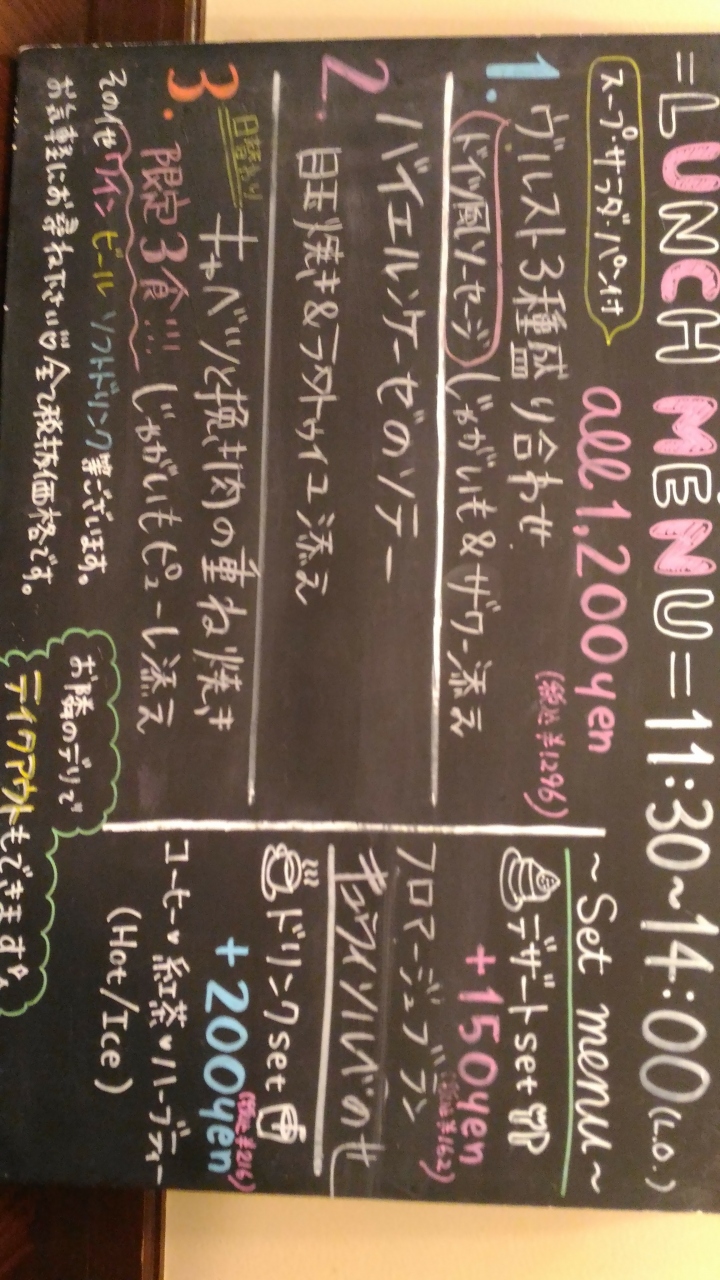 =LUNCH MENU= 11:30~14:00 (L.O.)
スープ・サラダ・パン付
all 1,200yen
(税込¥1296)
1. ヴルスト3種盛り合わせ
ドイツ風ソーセージ じゃがいも&ザワー添え
2. バイエルンケーゼのソテー
目玉焼き&ラタトゥイユ添え
3. キャベツと挽き肉の重ね焼き
限定3食!!! じゃがいもピューレ添え
その他ワイン ビール ソフトドリンク等ございます。
お気軽にお尋ね下さい♡全て税抜価格です。
お隣のデリで
テイクアウトもできます
~Set menu~
デザートset
+150yen
(税込¥162)
フロマージュブラン
ドリンクset
+200yen
(税込¥216)
コーヒー♥紅茶♥ハーブティー
(Hot/Ice)